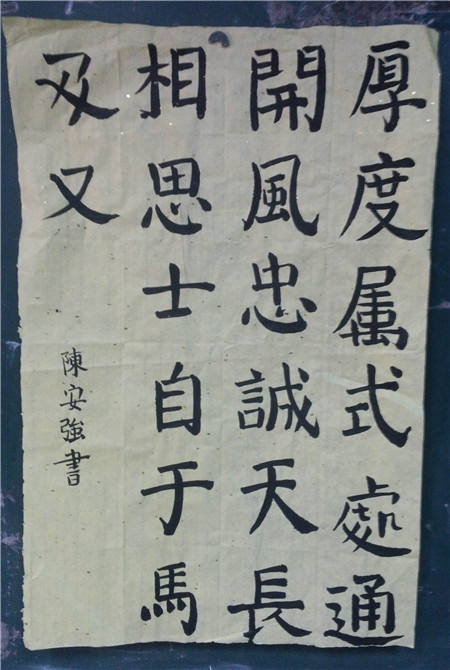 厚度属式處通
開風忠誠天長
相思士自于馬
又又
陳安強書